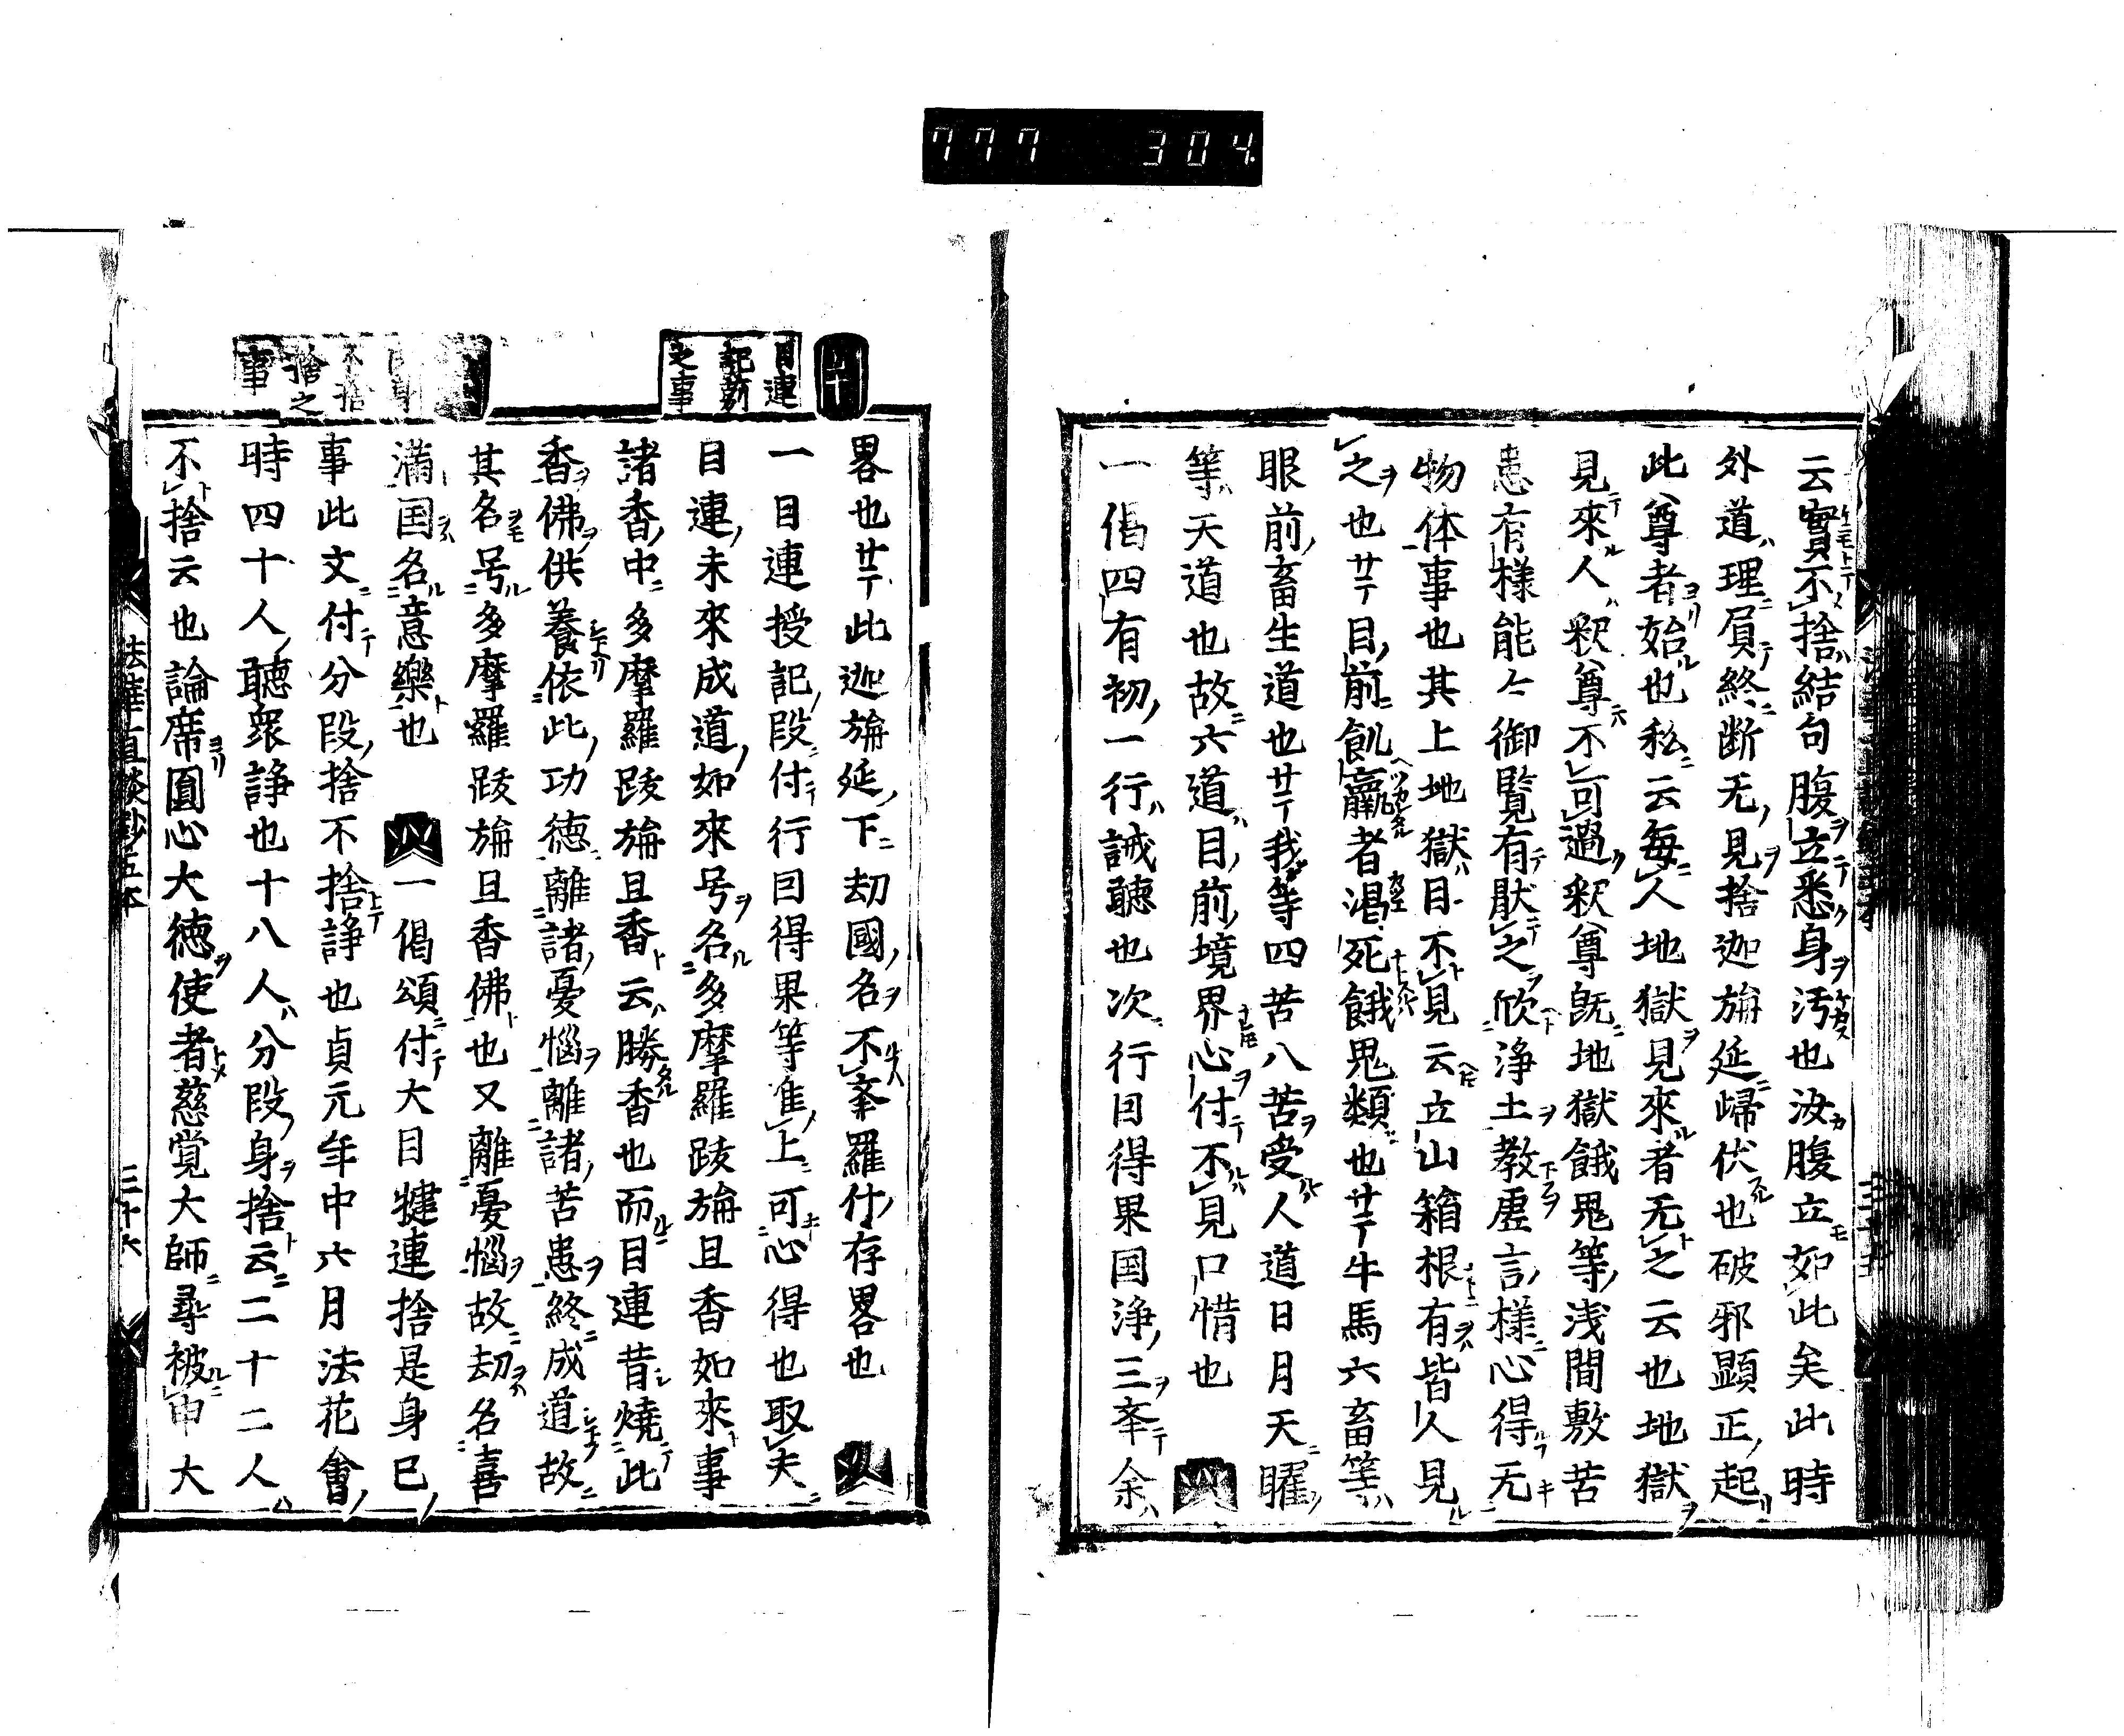 777 304
云實不捨結句腹立悉身汚也汝腹立如此矣此時
外道理屓終断无見捨迦旃延歸伏也破邪顕正起
此尊者始也私云毎人地獄見來者无之云也地獄
見來人釈尊不可過釈尊既地獄餓鬼等浅間敷苦
患有様能々御覧有猒之欣浄土教虚言様心得无
物体事也其上地獄目不見云立山箱根有皆人見
之也サテ目前飢羸者渇死餓鬼類也サテ牛馬六畜等
眼前畜生道也サテ我等四苦八苦受人道日月天曜
等天道也故六道目前境界心付不見口惜也
一偈四有初一行誡聴也次行因得果国浄三在余
畧也サテ此迦旃延下劫國名不在羅什存畧也
一目連授記段付行因得果等准上可心得也取夫
目連未來成道如來号名多摩羅跋旃且香如來事
諸香中多摩羅跋旃且香云勝香也而目連昔燒此
香佛供養依此功德離諸憂惱離諸苦患終成道故
其名号多摩羅跋旃且香佛也又離憂惱故劫名喜
滿国名意樂也 一偈頌付大目犍連捨是身已
事此文付分段捨不捨諍也貞元年中六月法花會
時四十人聽衆諍也十八人分段身捨云二十二人
不捨云也論席圓心大徳使者慈覚大師尋被申大
四十
目連記莂之事
不捨捨之事
法華直談鈔五本
三十六